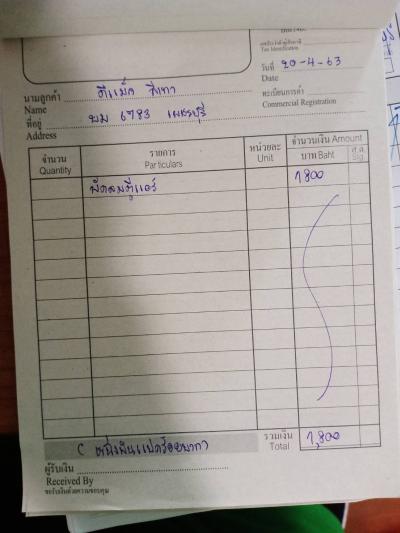 เลขประจำตัวผู้เสียภาษี
Tax Identification
วันที่ 20-4-63
Date
นามลูกค้า ดีแม็ก สีเทา
Name
ทะเบียนการค้า
Commercial Registration
ที่อยู่ บม 6783 เพชรบุรี
Address
จำนวน รายการ หน่วยละ จำนวนเงิน Amount
Quantity Particulars Unit บาท Baht ส.ต. Stg.
พัดลมตู้แอร์ 1,800
( หนึ่งพันแปดร้อยบาท) รวมเงิน 1,800
Total
ผู้รับเงิน
Received By
ขอรับเงินด้วยความขอบคุณ